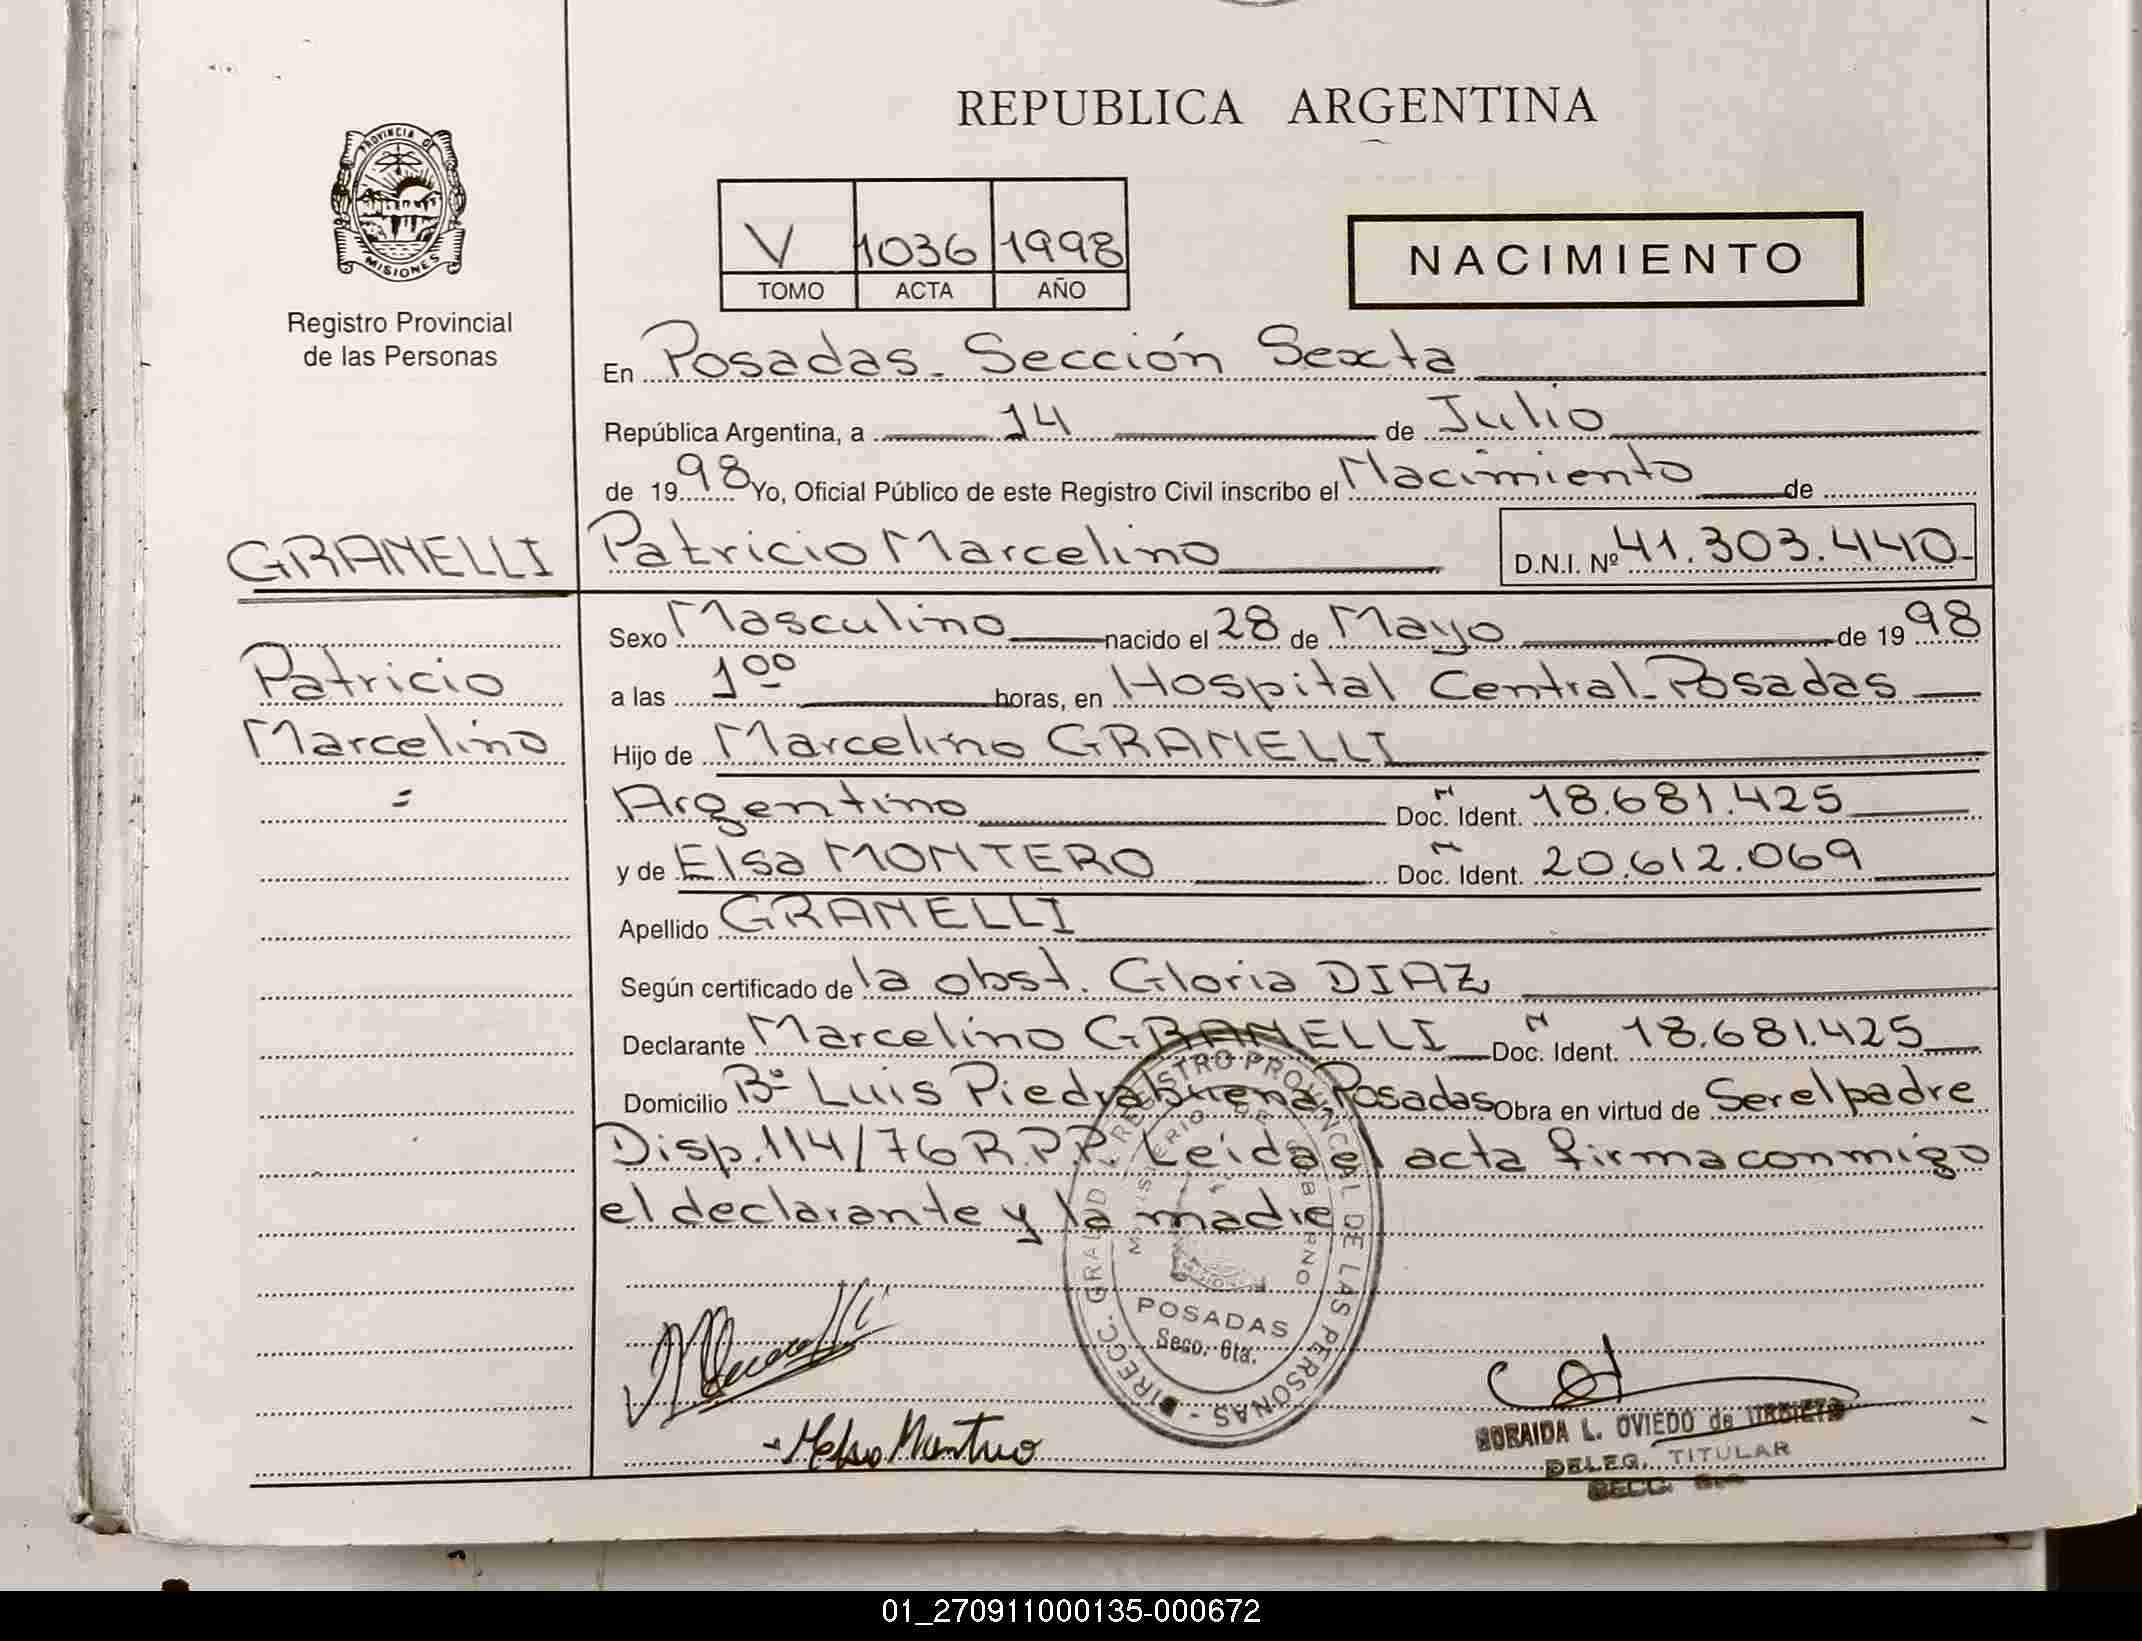 REPUBLICA ARGENTINA
PROVINCIA DE
MISIONES
Registro Provincial
de las Personas
V 1036 1998
TOMO ACTA AÑO
NACIMIENTO
En Posadas - Sección Sexta
República Argentina, a 14 de Julio
de 1998 Yo, Oficial Público de este Registro Civil inscribo el Nacimiento de
GRANELLI Patricio Marcelino D.N.I. Nº 41.303.440-
Patricio
Marcelino
=
Sexo Masculino nacido el 28 de Mayo de 1998
a las 1⁰⁰ horas, en Hospital Central - Posadas
Hijo de Marcelino GRANELLI
Argentino Doc. N Ident. 18.681.425
y de Elsa MONTERO Doc. N Ident. 20.612.069
Apellido GRANELLI
Según certificado de la obst. Gloria DIAZ
Declarante Marcelino GRANELLI Doc. N Ident. 18.681.425
Domicilio Bº Luis Piedrabuena, Posadas Obra en virtud de Ser el padre
Disp. 114/76 R.P.P. Leída el acta firma conmigo
el declarante y la madre
DIRECC. GRAL. D. REGISTRO PROVINCIAL DE LAS PERSONAS -
MINISTERIO DE GOBIERNO
POSADAS
Secc. 6ta.
NORAIDA L. OVIEDO de URBIETA
DELEG. TITULAR
SECC.
01_270911000135-000672